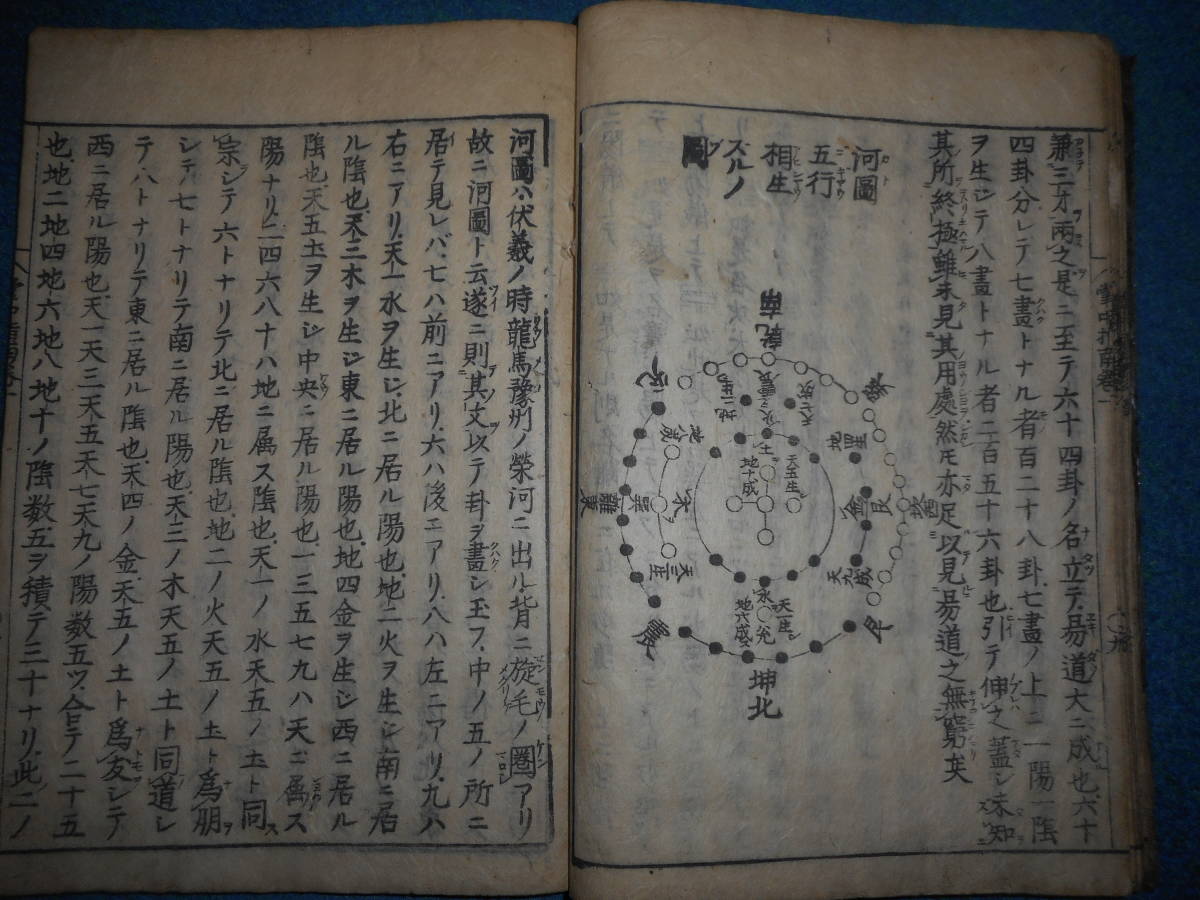 兼三才両之是ニ至テ六十四卦ノ名立テ易道大ニ成也六十
四卦分レテ七畫トナル者百二十八卦七畫ノ上ニ一陽一陰
ヲ生シテ八畫トナル者二百五十六卦也引テ伸之蓋シ未知
其所終極雖未見其用處然モ亦足以見易道之無窮矣
河圖
五行
相生
スルノ
圖
乾南
兌
巽
離東
坎西
震
艮
坤北
地二
天七成
地四生
天九成
天三生
地八成
天一生
地六成
天五生
地十成
火
土
金
木
水
河圖ハ伏羲ノ時龍馬豫州ノ榮河ニ出ル背ニ旋毛ノ圈アリ
故ニ河圖ト云遂ニ則其文以テ卦ヲ畫シ玉フ中ノ五ノ所ニ
居テ見レバ七ハ前ニアリ六ハ後ニアリ八ハ左ニアリ九ハ
右ニアリ天一水ヲ生シ北ニ居ル陽也地二火ヲ生シ南ニ居
ル陰也天三木ヲ生シ東ニ居ル陽也地四金ヲ生シ西ニ居ル
陰也天五土ヲ生シ中央ニ居ル陽也一三五七九ハ天ニ属ス
陽ナリ二四六八十ハ地ニ属ス陰也天一ノ水天五ノ土ト同
宗シテ六トナリテ北ニ居ル陰也地二ノ火天五ノ土ト為朋
シテ七トナリテ南ニ居ル陽也天三ノ木天五ノ土ト同道シ
テハトナリテ東ニ居ル陰也天四ノ金天五ノ土ト為友シテ
西ニ居ル陽也天一天三天五天七天九ノ陽数五ツ合テ二十五
也地二地四地六地八地十ノ陰数五ヲ積テ三十ナリ此二ノ